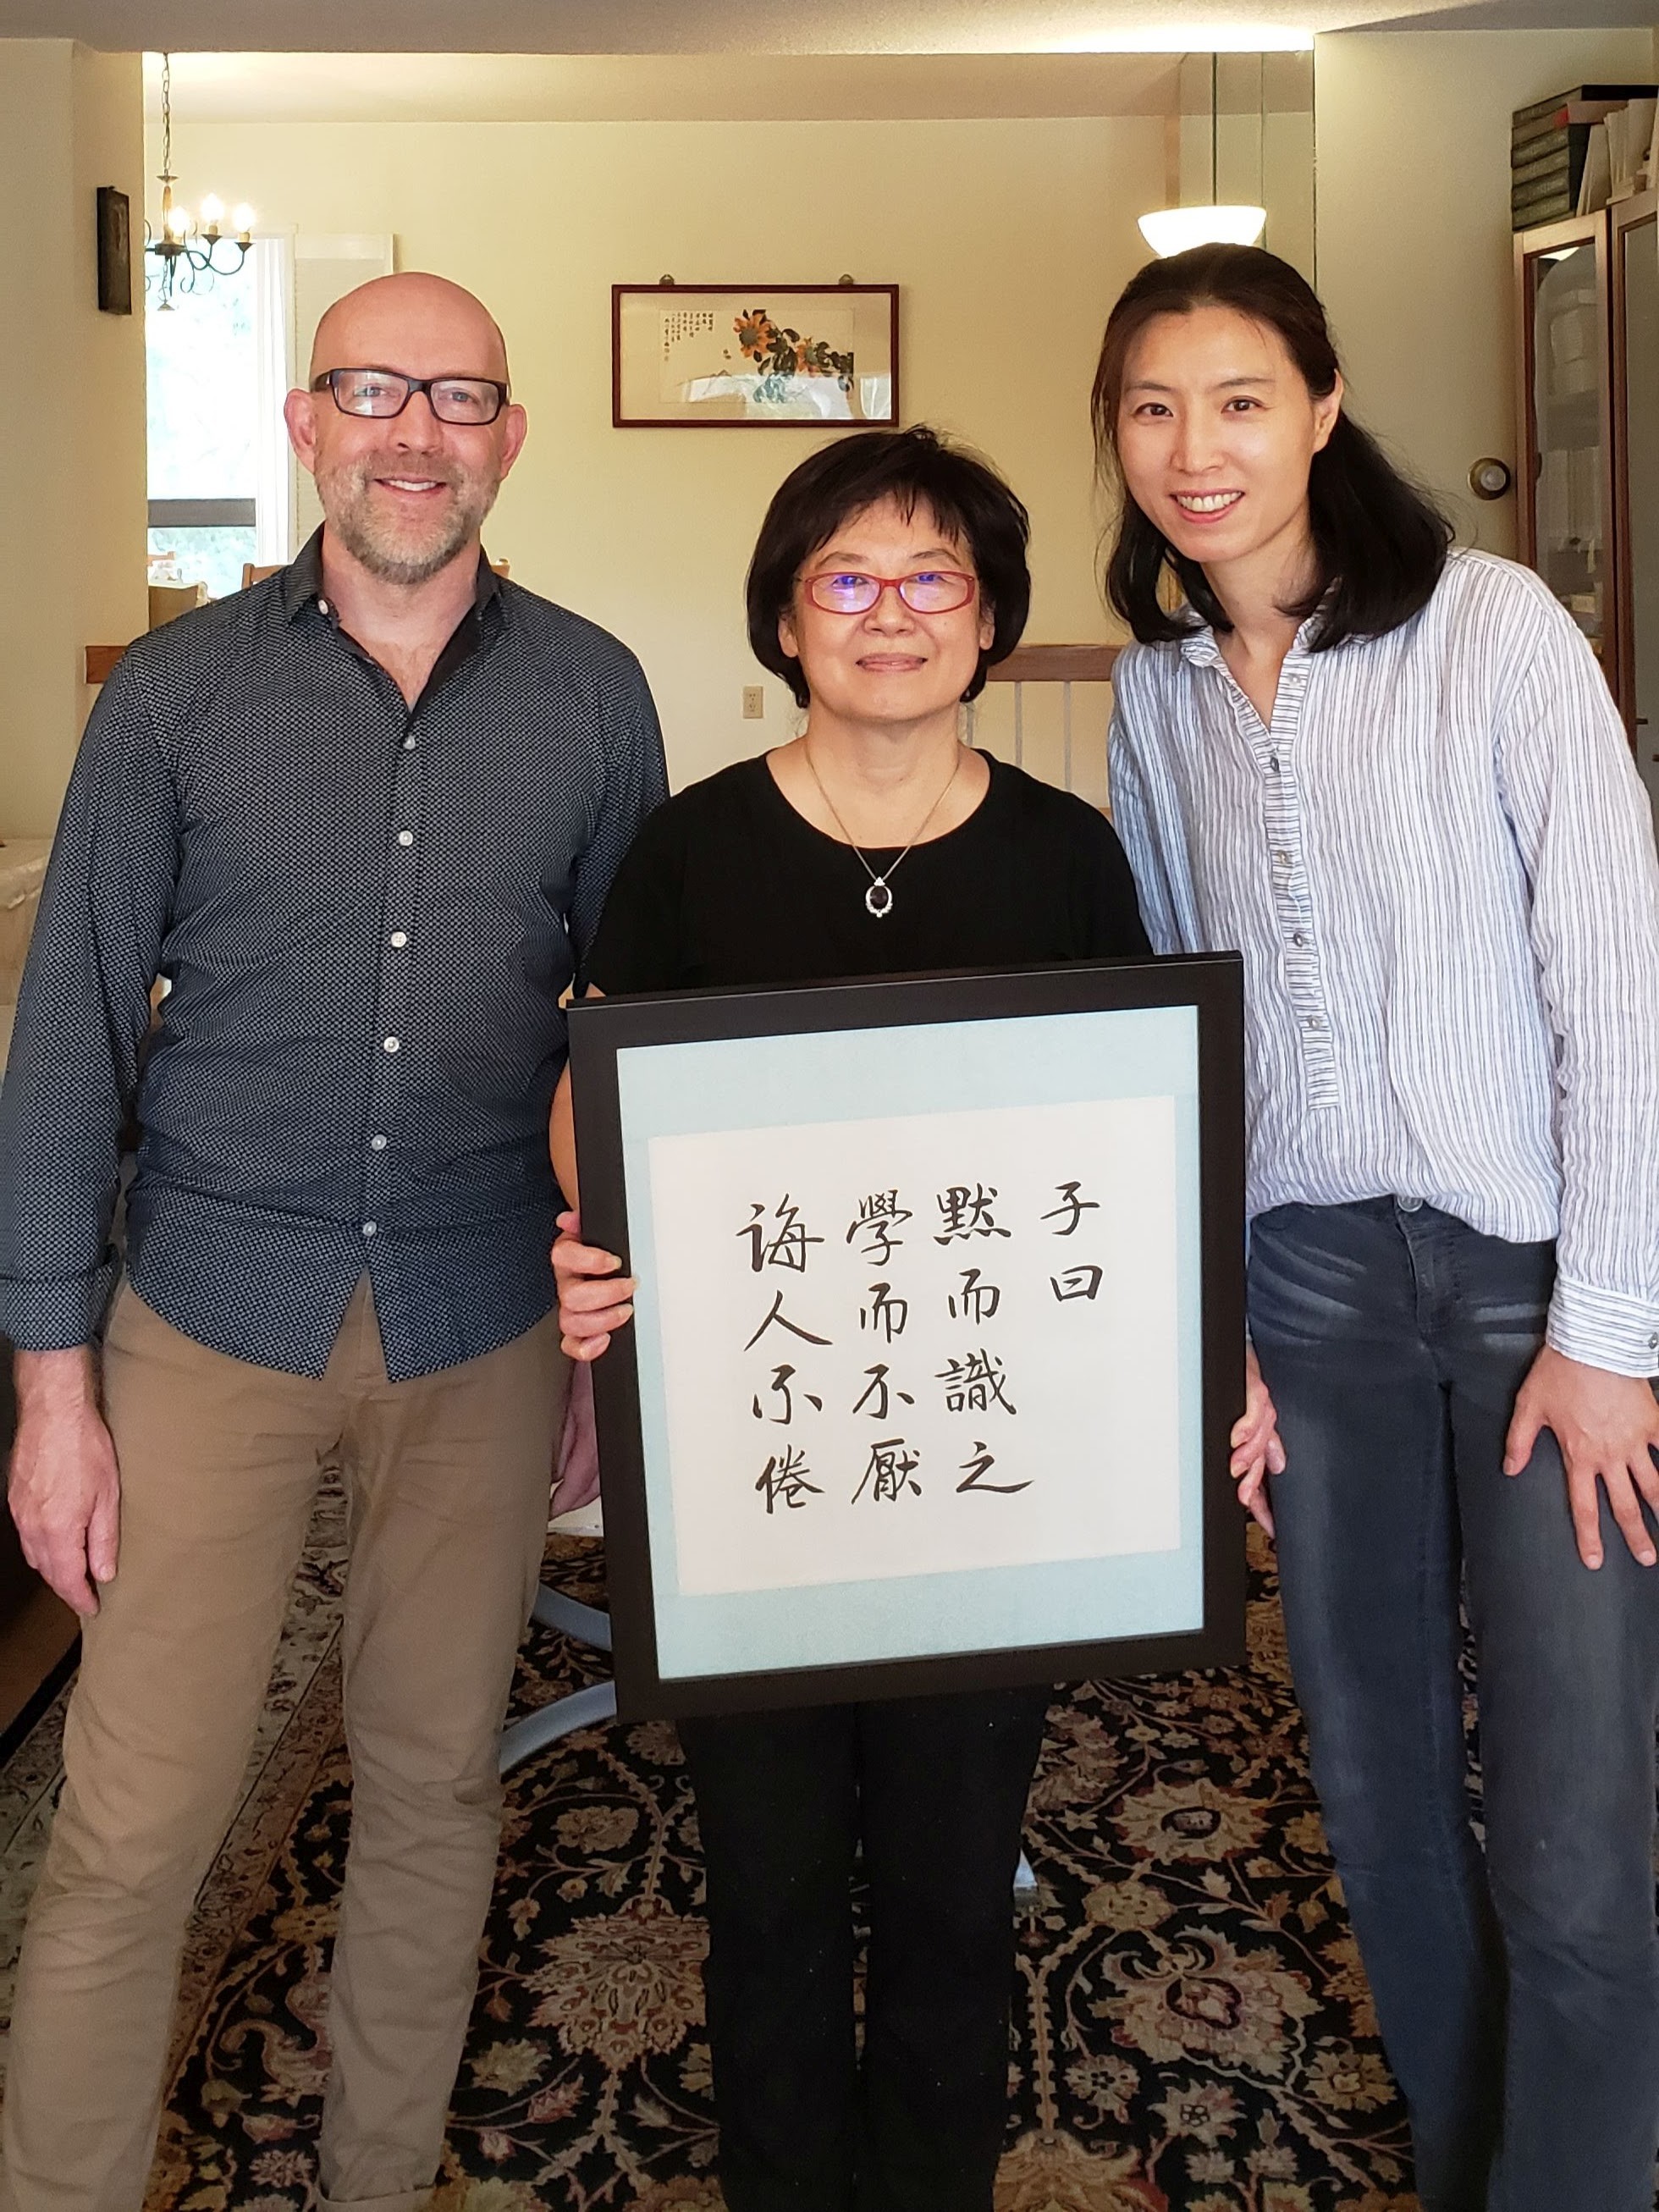 子曰
默而識之
學而不厭
誨人不倦